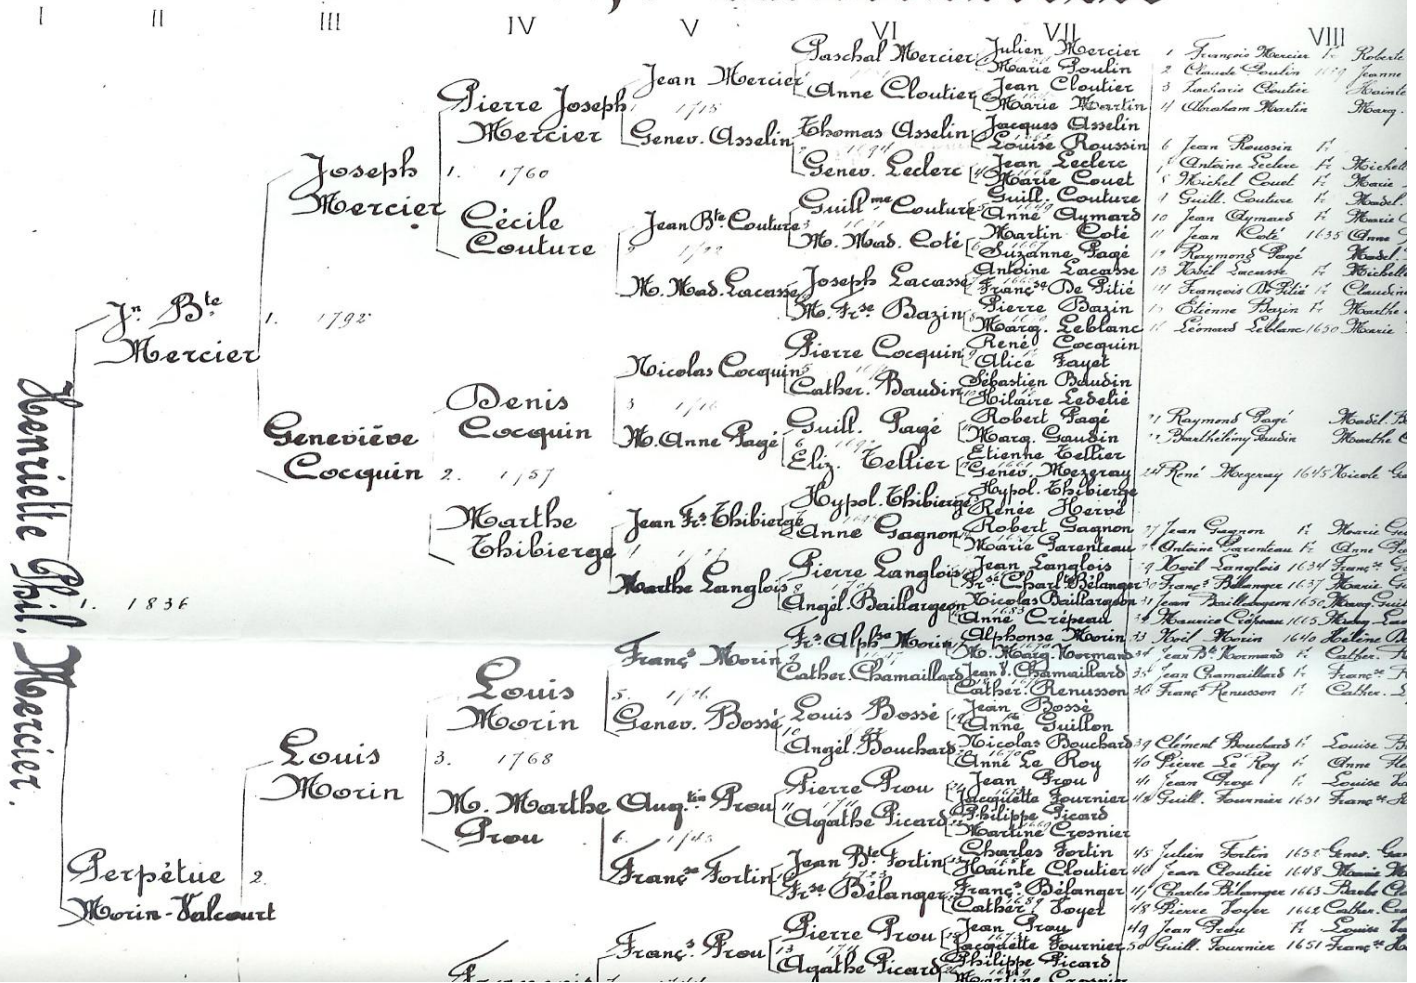 I II III IV V VI VII VIII
Henriette Phil. Mercier.
Jn. Bte
Mercier
1. 1836
Perpétue
Morin-Valcourt
Joseph
Mercier
1. 1792
Geneviève
Cocquin
Louis
Morin
2.
Pierre Joseph
Mercier
1. 1760
Cécile
Couture
Denis
Cocquin
2. 1757
Marthe
Thibierge
Louis
Morin
3. 1768
M. Marthe
Prou
Jean Mercier
1 1715
Genev. Asselin
Jean Bte. Couture
M. Mad. Lacasse
Nicolas Cocquin
3
M. Anne Pagé
Jean Frs Thibierge
Marthe Langlois
Françs Morin
5.
Genev. Bossé
Augtin Prou
6.
Françse Fortin
Françs. Prou
Paschal Mercier
Anne Cloutier
Thomas Asselin
Genev. Leclerc
Guillme Couture
M. Mad. Coté
Joseph Lacasse
M. Frse Bazin
Pierre Cocquin
Cather. Baudin
Guill. Pagé
Eliz. Tellier
Hypol. Thibierge
Anne Gagnon
Pierre Langlois
Angél. Baillargeon
Frs Alphse Morin
Cather. Chamaillard
Louis Bossé
Angél. Bouchard
Pierre Prou
11
Agathe Picard
Jean Bte Fortin
Frse Bélanger
Pierre Prou
13
Agathe Picard
Julien Mercier
Marie Poulin
Jean Cloutier
Marie Martin
Jacques Asselin
Louise Roussin
Jean Leclerc
Marie Couet
Guill. Couture
Anne Aymard
Martin Coté
Suzanne Pagé
Antoine Lacasse
Françse De Pitié
Pierre Bazin
Marg. Leblanc
René Cocquin
Alice Fayet
Sébastien Baudin
Hilaire Ledelié
Robert Pagé
Marg. Gaudin
Etienne Tellier
Genev. Mezeray
Hypol. Thibierge
Renée Hervé
Robert Gagnon
Marie Parenteau
Jean Langlois
Frse Charlte Bélanger
Nicolas Baillargeon
Anne Crépeau
Alphonse Morin
M. Marg. Normand
Jean V. Chamaillard
Cather. Renusson
Jean Bossé
Anne Guillon
Nicolas Bouchard
Anne Le Roy
Jean Prou
Jacquette Fournier
Philippe Picard
Martine Crosnier
Charles Fortin
Xainte Cloutier
Françs Bélanger
Cather. Voyer
Jean Prou
Jacquette Fournier
Philippe Picard
Martine Crosnier
1 François Mercier Fr. Roberte
2 Claude Poulin Jeanne
3 Zacharie Cloutier Xainte
4 Abraham Martin Marg.
6 Jean Roussin Fr.
7 Antoine Leclerc Fr. Michell
8 Michel Couet Fr. Marie
9 Guill. Couture Fr. Madel.
10 Jean Aymard Fr. Marie
11 Jean Coté 1635 Anne
12 Raymond Pagé Madel.
13 Noël Lacasse Fr. Michell
14 François De Pitié Fr. Claudin
15 Etienne Bazin Fr. Marthe
16 Léonard Leblanc 1650 Marie
21 Raymond Pagé Madel. B
22 Barthélemy Gaudin Marthe C
24 René Mezeray 1645 Nicole Ga
27 Jean Gagnon Fr. Marie
28 Antoine Parenteau Fr. Anne
29 Noël Langlois 1634 Françse
30 Françs Bélanger 1637 Marie
31 Jean Baillargeon 1650 Marg. Guil
32 Maurice Crépeau 1665 Marg.
33 Noël Morin 1640 Hélène
34 Jean Bte Normand Fr. Cather.
35 Jean Chamaillard Fr. Françse
36 Françs Renusson Fr. Cather.
39 Clément Bouchard Fr. Louise
40 Pierre Le Roy Fr. Anne
41 Jean Prou Fr. Louise
42 Guill. Fournier 1651 Françse
45 Julien Fortin 1652 Genev.
46 Jean Cloutier 1648 Marie
47 Charles Bélanger 1663 Barbe
48 Pierre Voyer 1662 Cather.
49 Jean Prou Fr. Louise
50 Guill. Fournier 1651 Françse